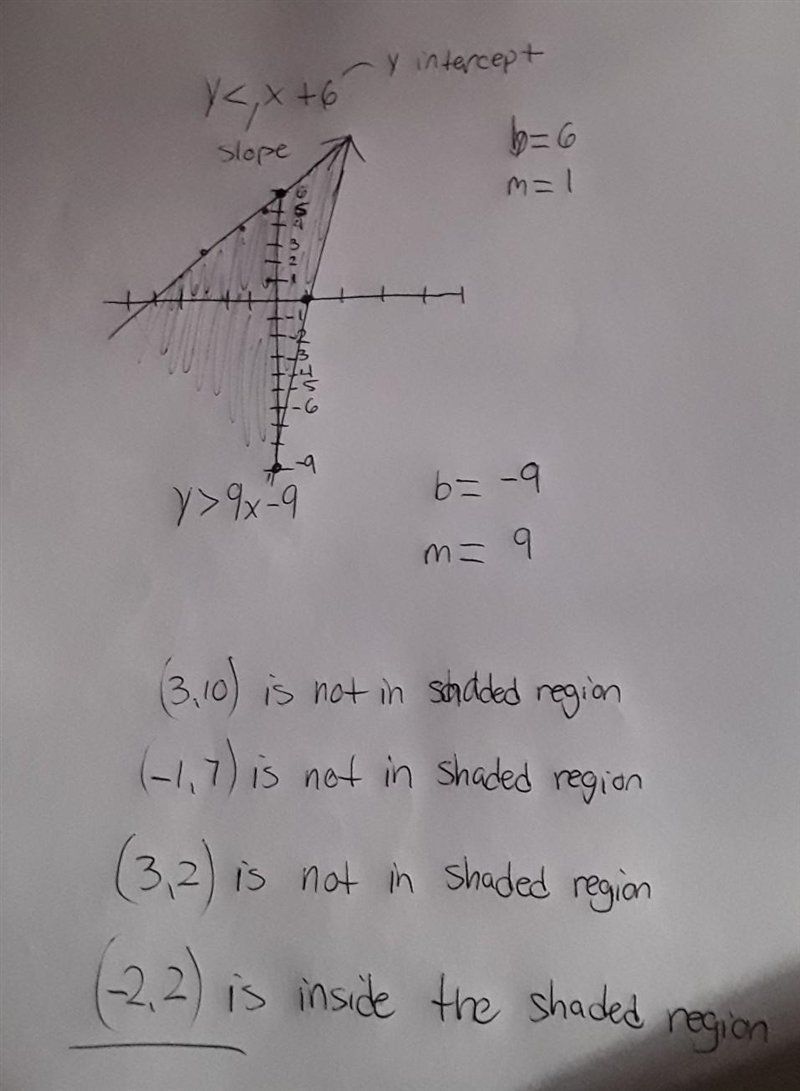 y intercept
y<1x+6
slope
b=6
m=1
6
5
4
3
2
1
-1
-2
-3
-4
-5
-6
-9
y>9x-9
b= -9
m= 9
(3,10) is not in shaded region
(-1,7) is not in shaded region
(3,2) is not in shaded region
(-2,2) is inside the shaded region